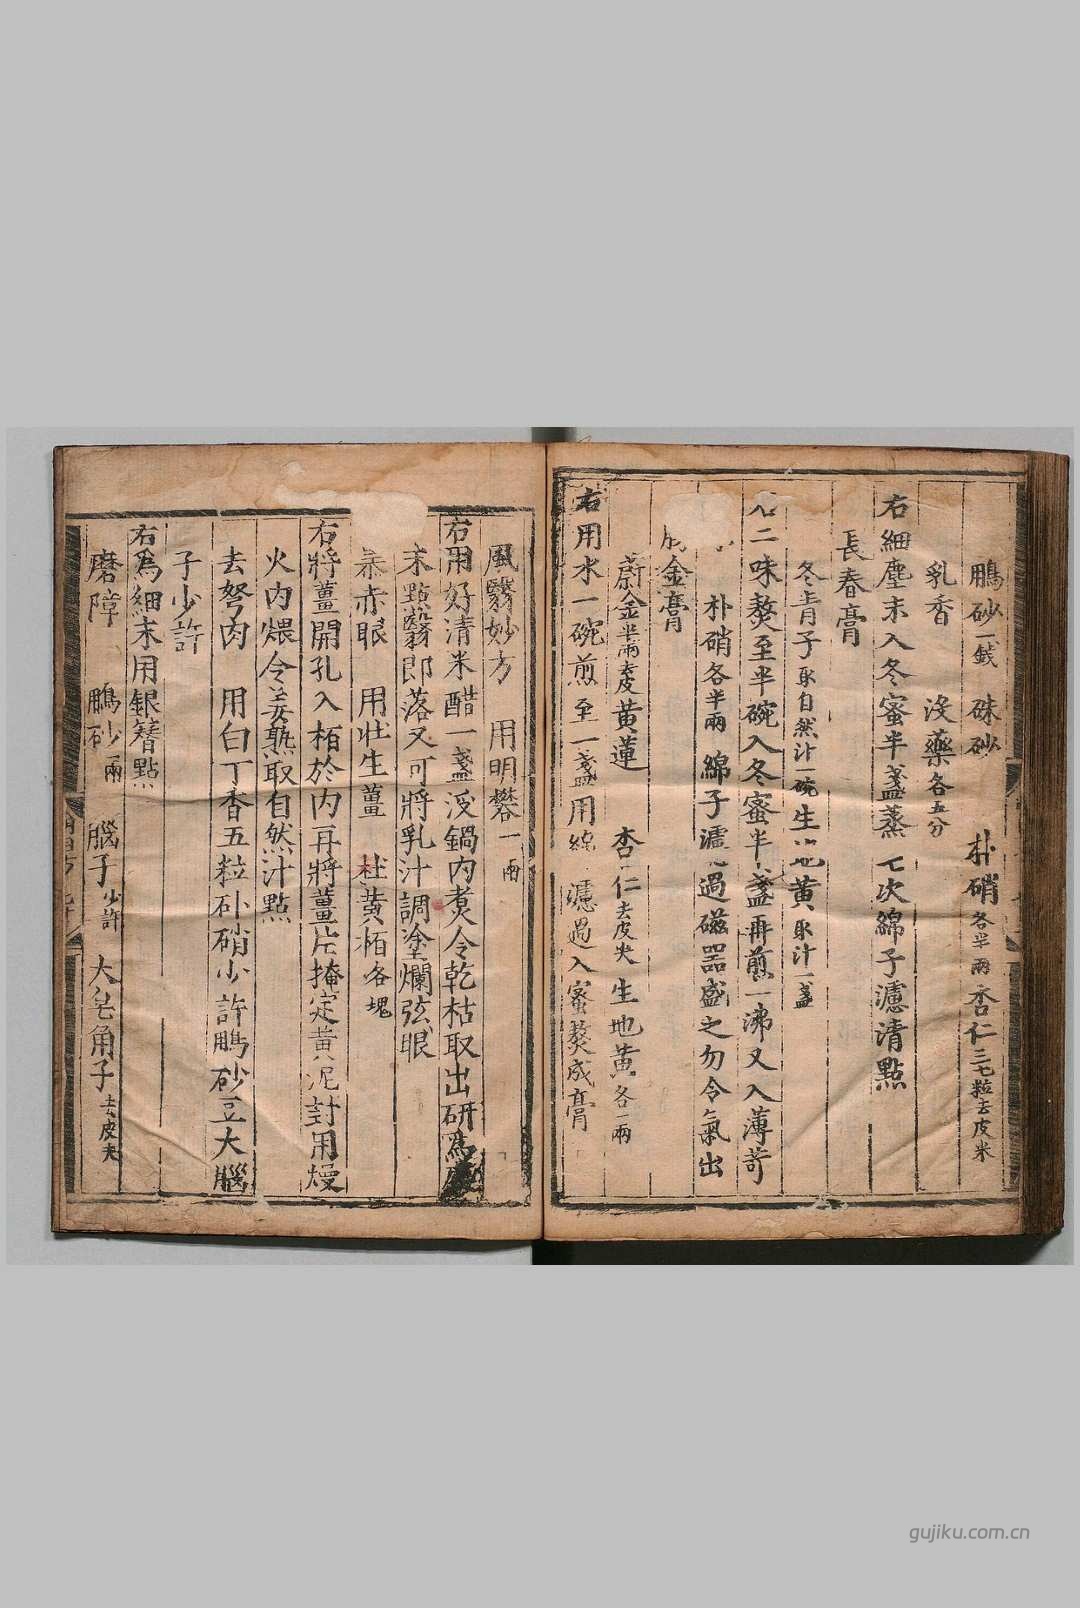 鵬砂一錢 硃砂 朴硝各半兩 杏仁三七粒去皮米
乳香 沒藥各五分
右細塵末入冬蜜半盞蒸七次綿子濾清點
長春膏
冬青子取自然汁一碗生地黃取汁一盞
右二味熬至半碗入冬蜜半盞再煎一沸又入薄苛
朴硝各半兩 綿子濾過磁器盛之勿令氣出
金膏
蔚金半兩去皮黃蓮 杏仁去皮尖 生地黃各一兩
右用水一碗煎至一盞用綿濾過入蜜熬成膏
風翳妙方 用明礬一兩
右用好清米醋一盞浸鍋內煮令乾枯取出研為
末點翳即落又可將乳汁調塗爛弦眼
暴赤眼 用壯生薑 杜黃栢各塊
右將薑開孔入栢於內再將薑片掩定黃泥封用熳
火內煨令姜熟取自然汁點
去弩肉 用白丁香五粒朴硝少許鵬砂豆大腦
子少許
右為細末用銀簪點
磨障 鵬砂一兩 腦子少許 大皂角子去皮夫
gujiku.com.cn